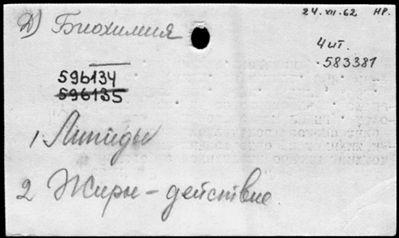 24.VII.62 НР.
Д) Биохимия
4 ит.
583381
596134
596135
1 Липиды
2 Жиры – действие